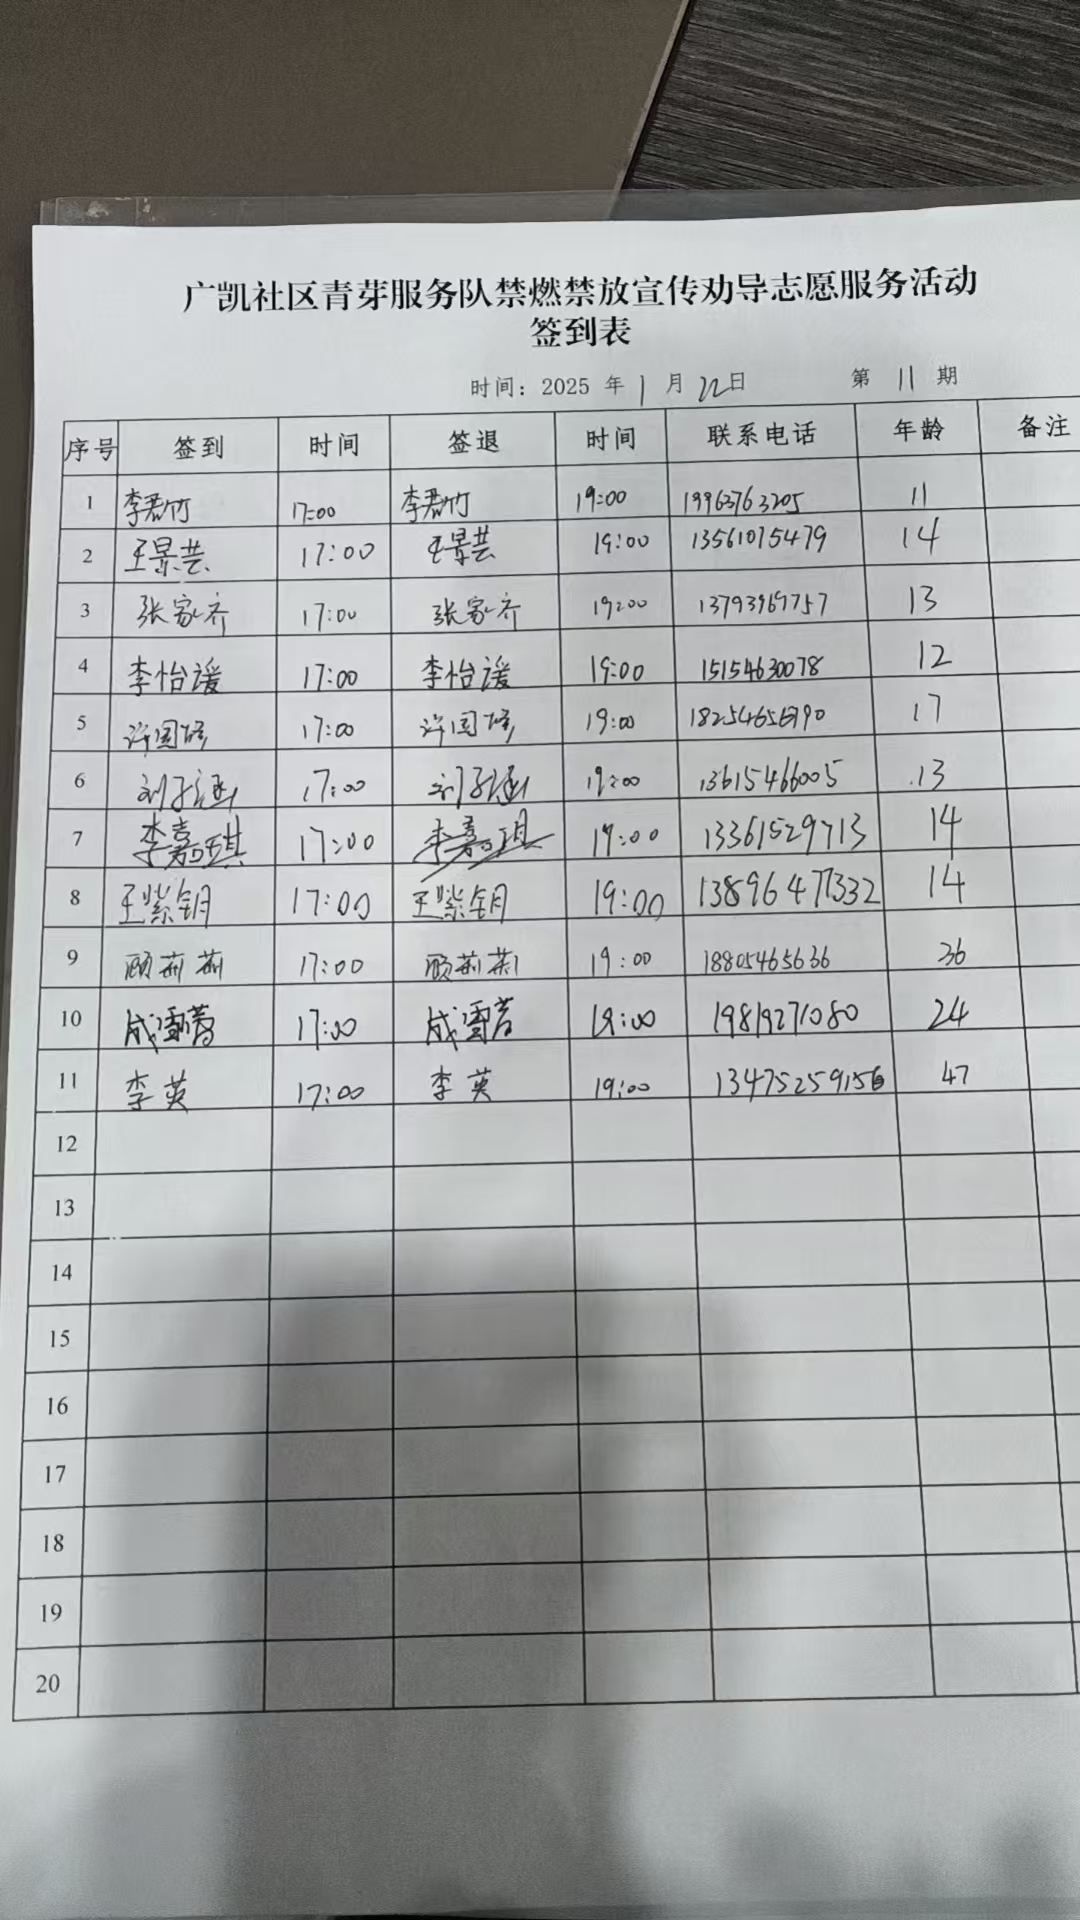 广凯社区青芽服务队禁燃禁放宣传劝导志愿服务活动
签到表
时间：2025 年 1 月 22 日 第 11 期
序号 签到 时间 签退 时间 联系电话 年龄 备注
1 李君竹 17:00 李君竹 19:00 19963763205 11
2 王景芸 17:00 王景芸 19:00 13561075479 14
3 张家齐 17:00 张家齐 19:00 13793969757 13
4 李怡谖 17:00 李怡谖 19:00 15154630078 12
5 许国修 17:00 许国修 19:00 17
6 刘子涵 17:00 刘子涵 19:00 13615466005 13
7 李嘉琪 17:00 李嘉琪 19:00 13361529713 14
8 王紫钥 17:00 王紫钥 19:00 13896471332 14
9 顾莉莉 17:00 顾莉莉 19:00 18805465636 36
10 成雪蓉 17:00 成雪蓉 19:00 19819271080 24
11 李英 17:00 李英 19:00 13475259156 47
12
13
14
15
16
17
18
19
20